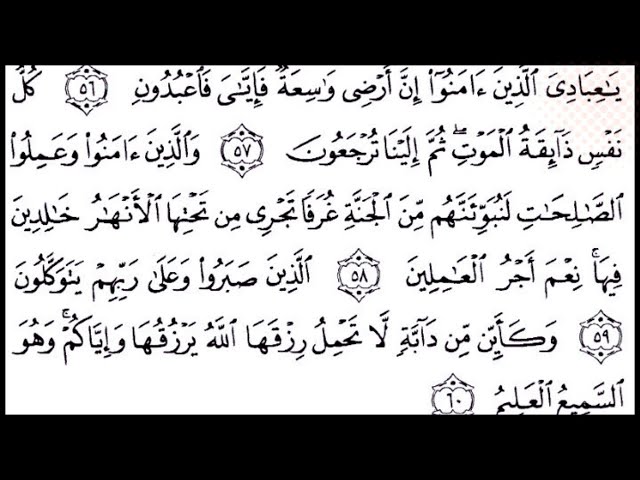 يَٰعِبَادِيَ ٱلَّذِينَ ءَامَنُوٓا۟ إِنَّ أَرْضِى وَٰسِعَةٌ فَإِيَّٰىَ فَٱعْبُدُونِ ٥٦ كُلُّ
نَفْسٍ ذَآئِقَةُ ٱلْمَوْتِ ۖ ثُمَّ إِلَيْنَا تُرْجَعُونَ ٥٧ وَٱلَّذِينَ ءَامَنُوا۟ وَعَمِلُوا۟
ٱلصَّٰلِحَٰتِ لَنُبَوِّئَنَّهُم مِّنَ ٱلْجَنَّةِ غُرَفًا تَجْرِى مِن تَحْتِهَا ٱلْأَنْهَٰرُ خَٰلِدِينَ
فِيهَا ۚ نِعْمَ أَجْرُ ٱلْعَٰمِلِينَ ٥٨ ٱلَّذِينَ صَبَرُوا۟ وَعَلَىٰ رَبِّهِمْ يَتَوَكَّلُونَ
٥٩ وَكَأَيِّن مِّن دَآبَّةٍ لَّا تَحْمِلُ رِزْقَهَا ٱللَّهُ يَرْزُقُهَا وَإِيَّاكُمْ ۚ وَهُوَ
ٱلسَّمِيعُ ٱلْعَلِيمُ ٦٠